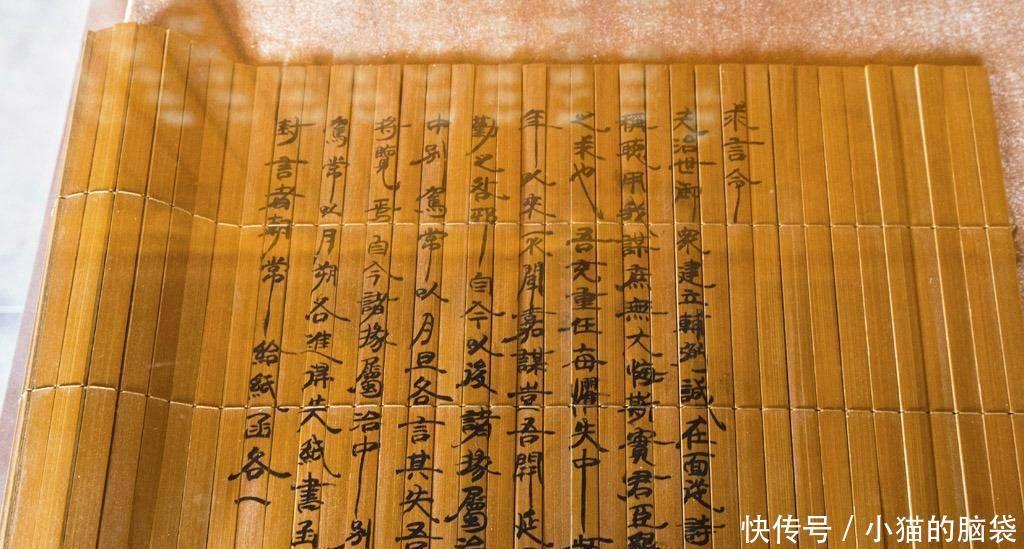 求言令
夫治世御眾建立輔弼誡在面從詩
稱聽用我謀庶無大悔斯實君臣懇
之求也吾充重任每懼失中頻
年以來不聞嘉謀豈吾開延
勤之咎邪自今以後諸掾屬治
中別駕常以月旦各言其失吾
将覽焉自今諸掾屬治中別
駕常以月朔各進得失紙書函
封言者朝常給紙函各一
快传号 / 小猫的脑袋